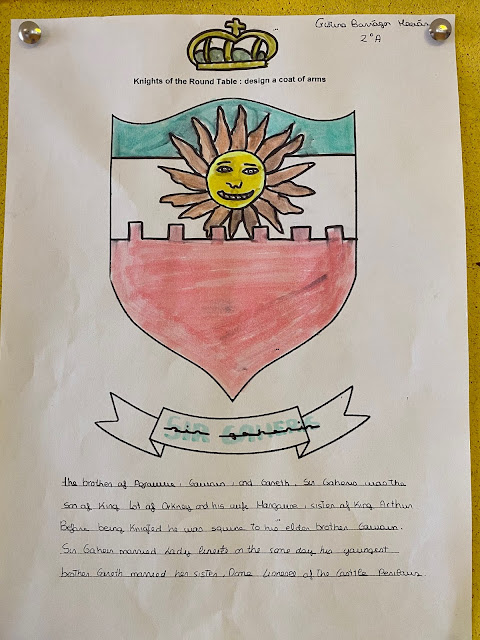 2ºA
Knights of the Round Table : design a coat of arms
SIR GAHERIS
The brother of Agravaine, Gawain, and Gareth, Sir Gaheris was the
son of King Lot of Orkney and his wife Morgause, sister of King Arthur
Before being Knigted he was squire to his elder brother Gawain.
Sir Gaheris married Lady Linette on the same day his youngest
brother Gareth married her sister, Dame Lioness of the Castle Perilous.